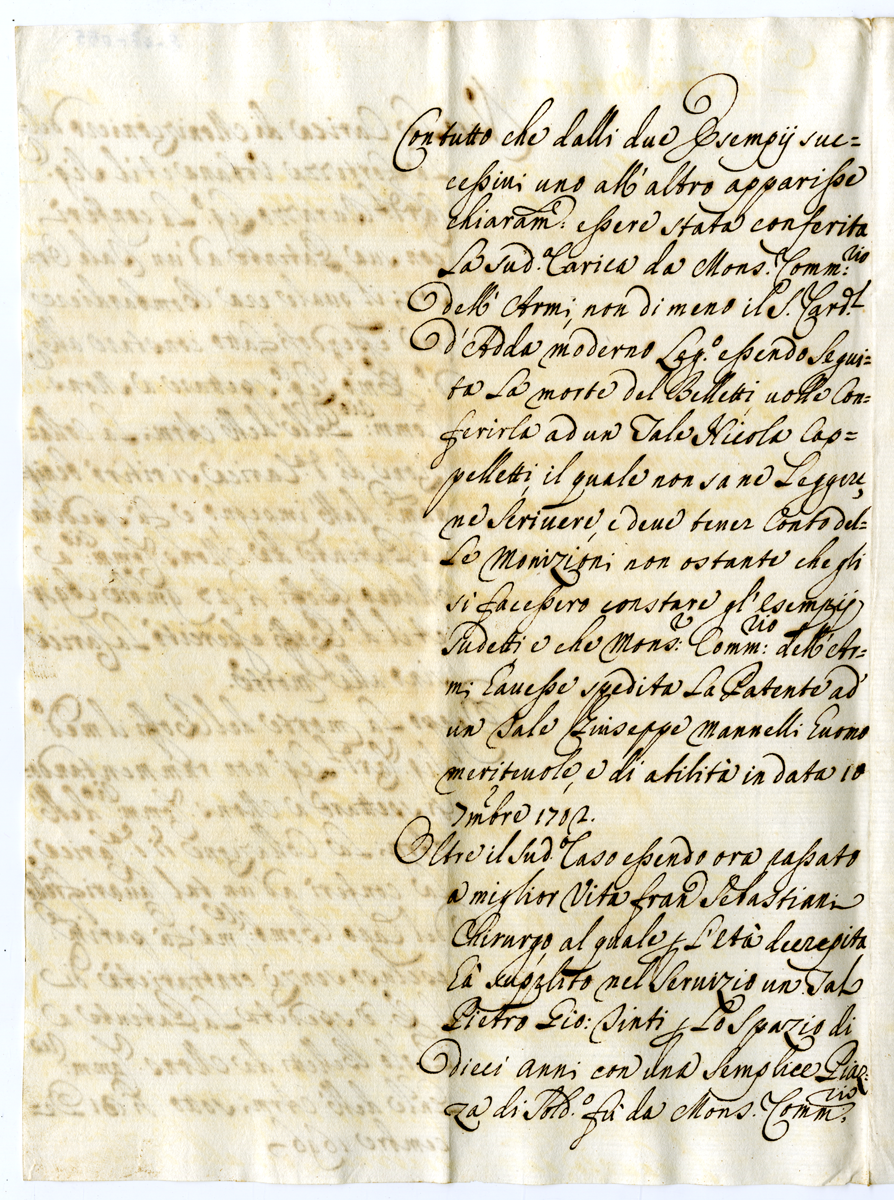 Con tutto che dalli due Esempij suc=
cessiui uno all'altro apparisse
chiaram: essere stata conferita
La sud.a Carica da Mons. Comm:rio
dell'Armi, non di meno il S. Card.l
d'Adda moderno Leg.o essendo segui=
ta La morte del Belletti, uolle Con=
ferirla ad un Tale Nicola Cap=
pelletti, il quale non sa ne Leggere,
ne Scriuere, e deue tener Conto del=
Le Monizioni non ostante che gli
si facessero constare gl'esempij
sudetti e che Mons.r Comm:rio dell'Ar=
mi hauesse spedita La Patente ad
un Tale Giuseppe Mannelli huomo
meriteuole, e di abilità in data 10
7mbre 1702.
Oltre il sud.o Caso essendo ora passato
a miglior Vita fran.co Sebastiani
Chirurgo al quale p L'età decrepita
hà supplito nel Seruizio un Tal
Pietro Gio: Sinti p Lo Spazio di
dieci anni con una semplice Piaz:
za di Sold.o fù da Mons. Comm:rio